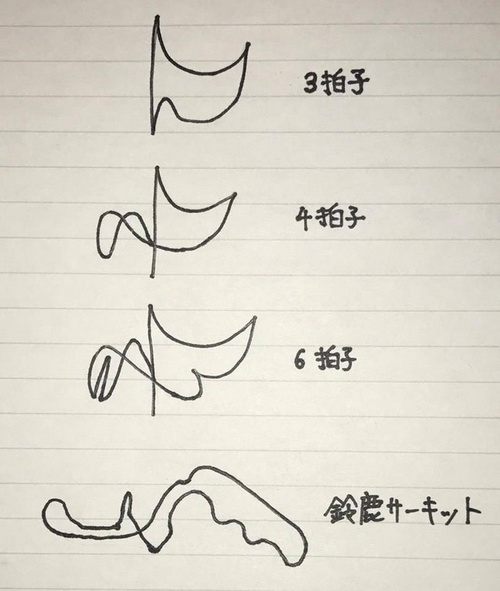 3拍子
4拍子
6拍子
鈴鹿サーキット